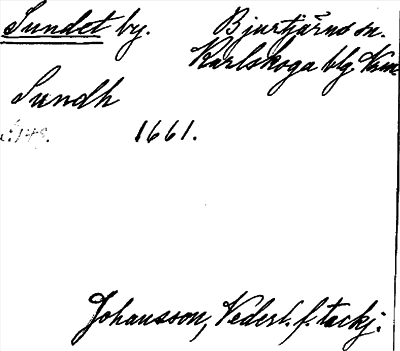 Sundet by. Bjurtjärns sn.
Karlskoga blg Vrm
Sundh
S. 148. 1661.
Johansson, Vederl. f. tackj.